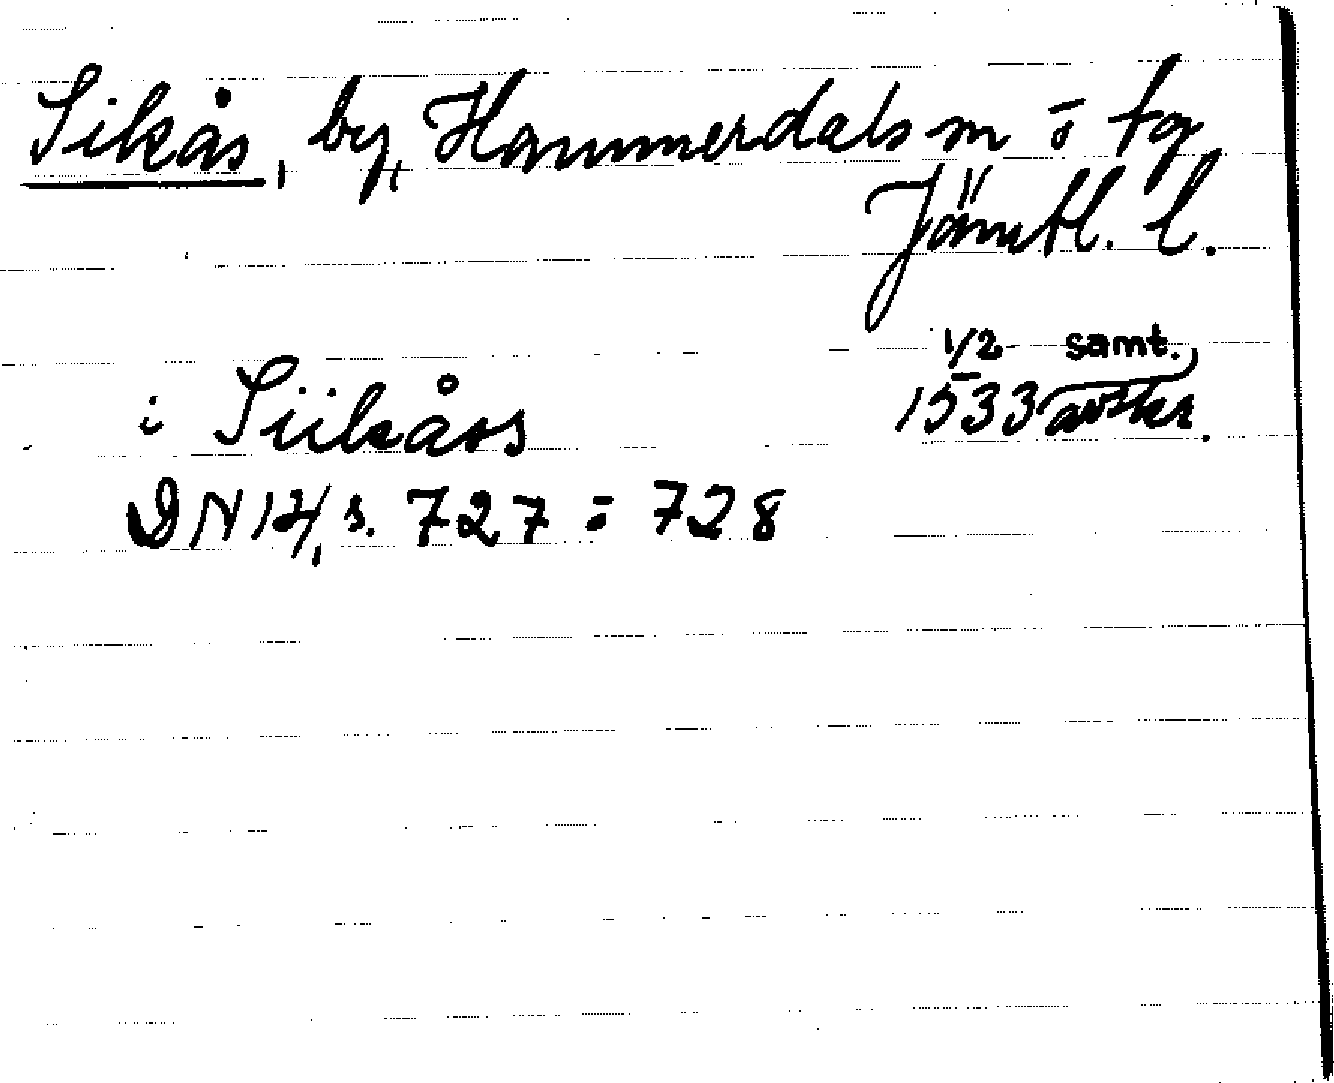 Sikås, by, Hammerdals sn o tg
Jämtl. l.
1/2 samt.
i Siikåss 1533 avskr.
DN 14, s. 727 = 728